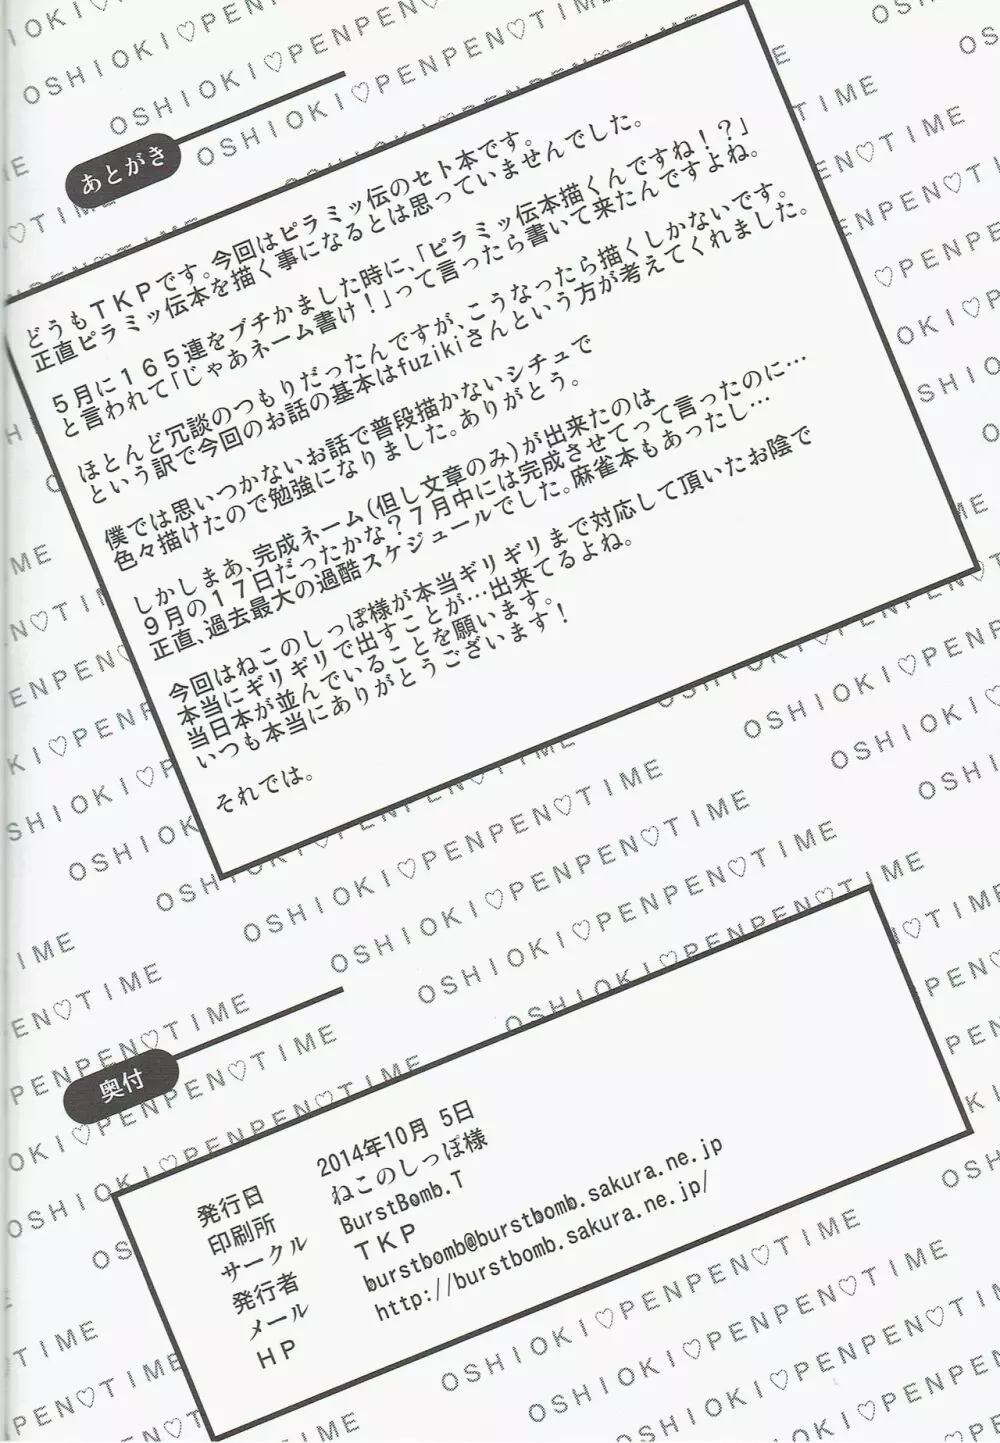 あとがき
どうもTKPです。今回はピラミッ伝のセト本です。
正直ピラミッ伝本を描く事になるとは思っていませんでした。
5月に165連をブチかました時に、「ピラミッ伝本描くんですね!?」
と言われて「じゃあネーム書け!」って言ったら書いて来たんですよね。
ほとんど冗談のつもりだったんですが、こうなったら描くしかないです。
という訳で今回のお話の基本はfuzikiさんという方が考えてくれました。
僕では思いつかないお話で普段描かないシチュで
色々描けたので勉強になりました。ありがとう。
しかしまあ、完成ネーム(但し文章のみ)が出来たのは
9月の17日だったかな?7月中には完成させてって言ったのに…
正直、過去最大の過酷スケジュールでした。麻雀本もあったし…
今回はねこのしっぽ様が本当ギリギリまで対応して頂いたお陰で
本当にギリギリで出すことが…出来てるよね。
当日本が並んでいることを願います。
いつも本当にありがとうございます!
それでは。
奥付
発行日 2014年10月 5日
印刷所 ねこのしっぽ様
サークル BurstBomb.T
発行者 TKP
メール burstbomb@burstbomb.sakura.ne.jp
HP http://burstbomb.sakura.ne.jp/
OSHIOKI♡PENPEN♡TIME
OSHIOKI♡PENPEN♡TIME
OSHIOKI♡PENPEN♡TIME
OSHIOKI♡PENPEN♡TIME
OSHIOKI♡PENPEN♡TIME
OSHIOKI♡PENPEN♡TIME